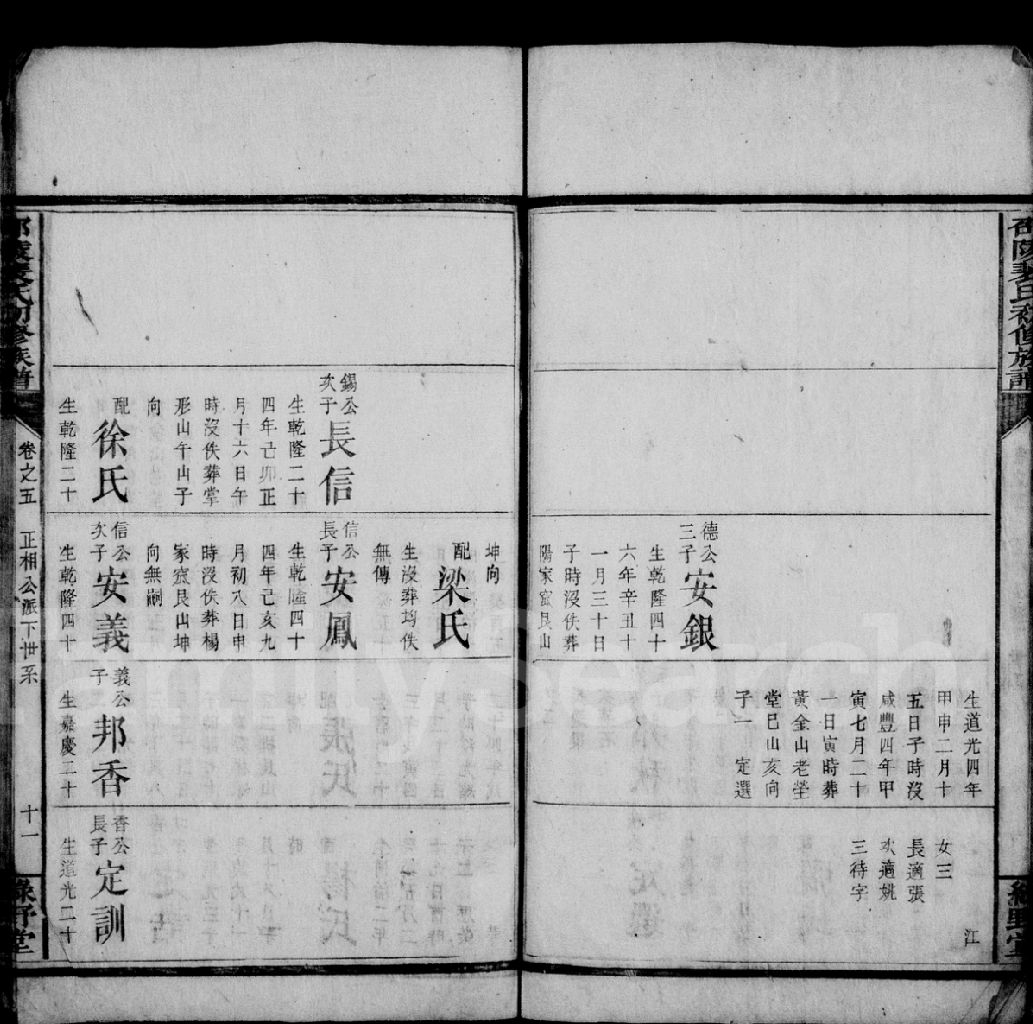 生道光四年
甲申二月十
五日子時沒
咸豐四年甲
寅七月二十
一日寅時葬
黃金山老塋
堂巳山亥向
子一 定選
女三
長適張
次適姚
三待字
江
德公
三子
安銀
生乾隆四十
六年辛丑十
一月三十日
子時沒佚葬
陽家窊艮山
坤向
配
梁氏
生沒葬均佚
無傳
錫公
次子
長信
生乾隆二十
四年己卯正
月十六日午
時沒佚葬掌
形山午山子
向
配
徐氏
生乾隆二十
信公
長子
安鳳
生乾隆四十
四年己亥九
月初八日申
時沒佚葬楊
家窊艮山坤
向無嗣
信公
次子
安義
生乾隆四十
義公
子
邦香
生嘉慶二十
香公
長子
定訓
生道光二十
卷之五
正相公派下世系
十一
FamilySearch